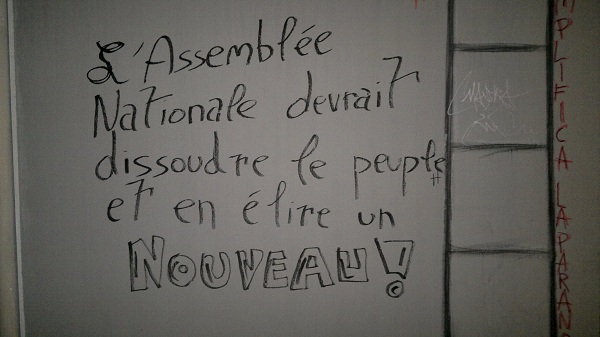 L'Assemblée
Nationale devrait
dissoudre le peuple
et en élire un
NOUVEAU!